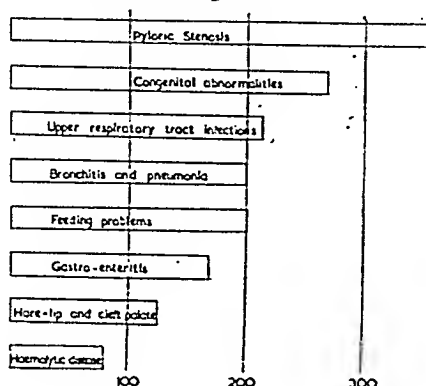 Pyloric Stenosis
Congenital abnormalities
Upper respiratory tract infections
Bronchitis and pneumonia
Feeding problems
Gastro-enteritis
Hare-lip and cleft palate
Haemolytic disease
100 200 300